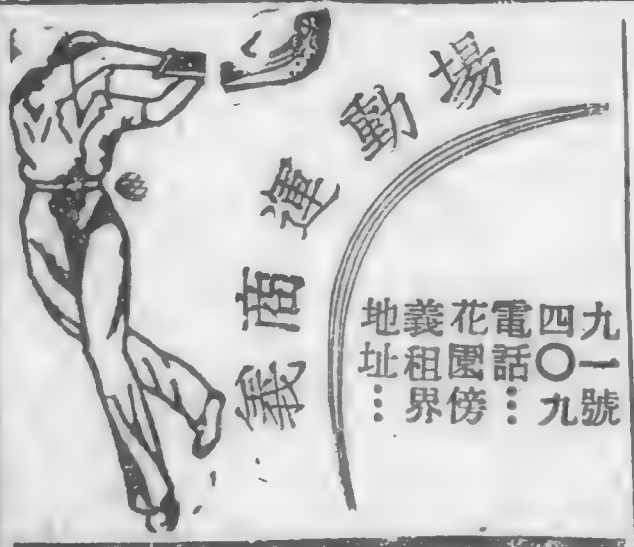 義商運動場
地址⋮
義租界
花園傍
電話⋮
四〇九
九一號